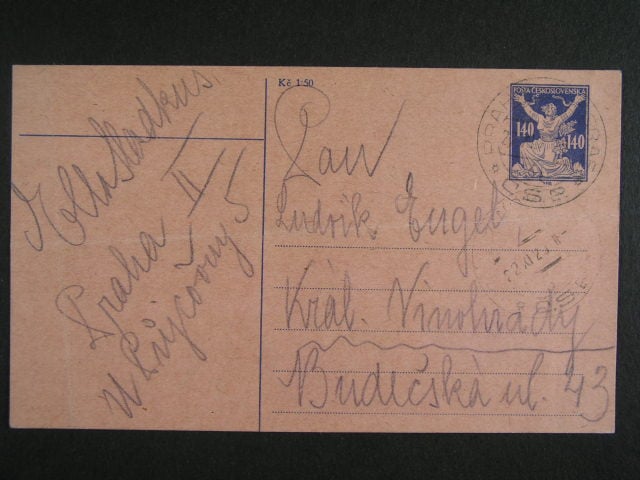 Kč 1·50
POŠTA ČESKOSLOVENSKÁ
140 140
PRAHA PRAG
Pan
Ludvík Engel
Král. Vinohrady
Budečská ul. 43
Praha II
u Půjčovny 5